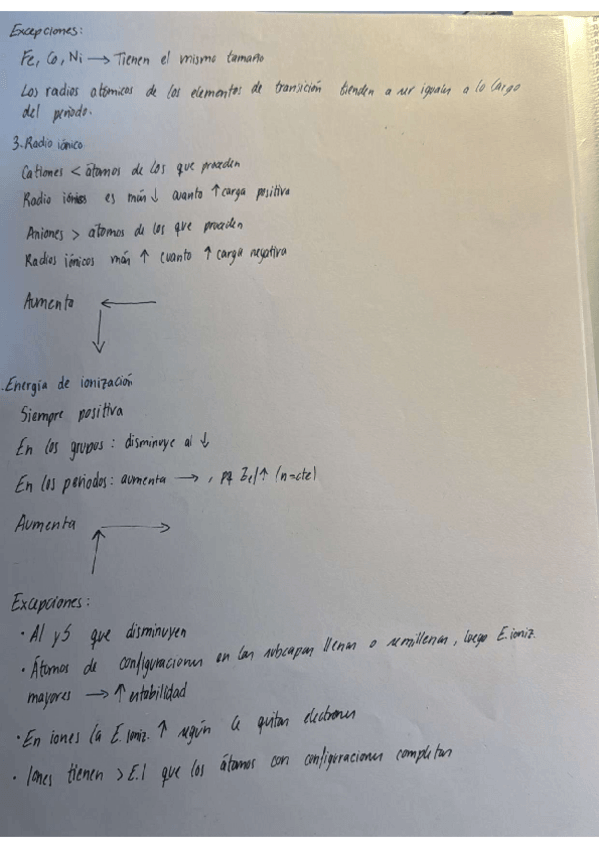 Excepciones:
Fe, Co, Ni → Tienen el mismo tamaño
Los radios atómicos de los elementos de transición tienden a ser iguales a lo largo
del periodo.
3. Radio iónico
Cationes < átomos de los que proceden
Radio iónico es más ↓ cuanto ↑ carga positiva
Aniones > átomos de los que proceden
Radios iónicos más ↑ cuanto ↑ carga negativa
Aumenta ←
↓
.Energía de ionización
Siempre positiva
En los grupos: disminuye al ↓
En los periodos: aumenta → , pq Zef ↑ (n=cte)
Aumenta →
↑
Excepciones:
• Al y S que disminuyen
• Átomos de configuraciones en las subcapas llenas o semillenas, luego E.ioniz.
mayores → ↑ estabilidad
• En iones la E. Ioniz. ↑ según le quitan electrones
• Iones tienen > E.I que los átomos con configuraciones completas